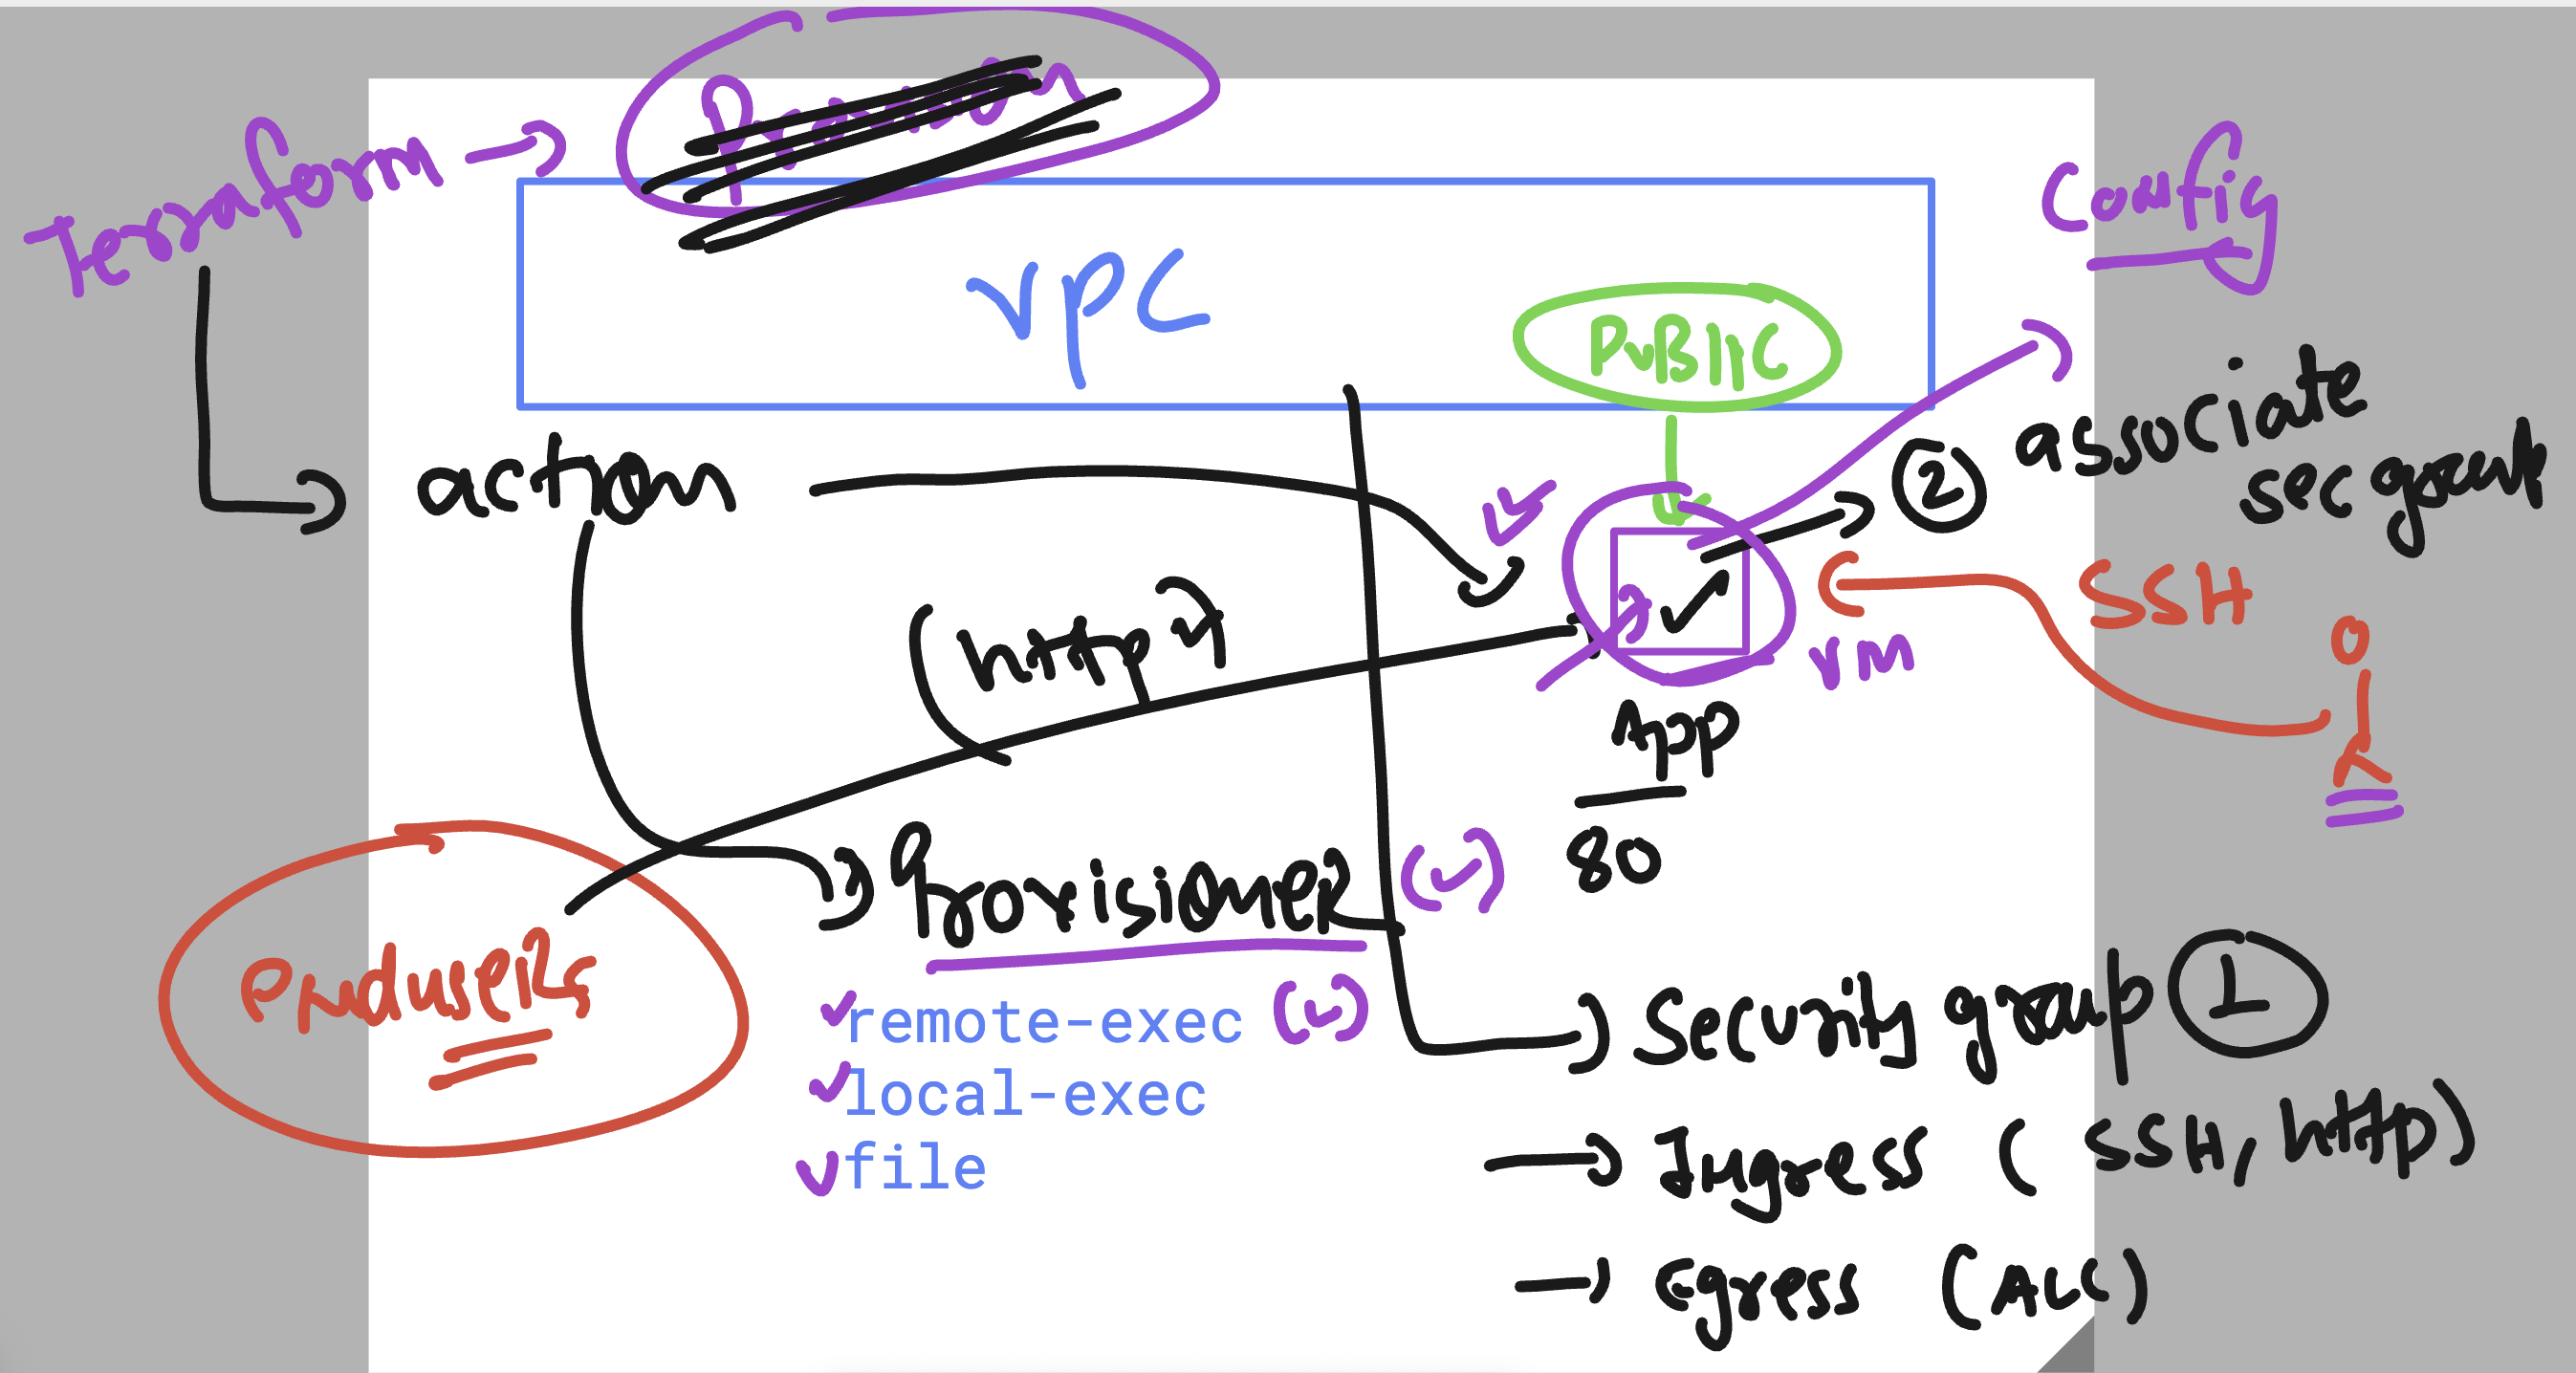 Terraform
Provision
Config
VPC
PUBlIC
action
② associate
sec group
(http)
SSH
vm
App
80
Provisioner
endusers
remote-exec
local-exec
file
Security group ①
Ingress (SSH, http)
Egress (ALL)